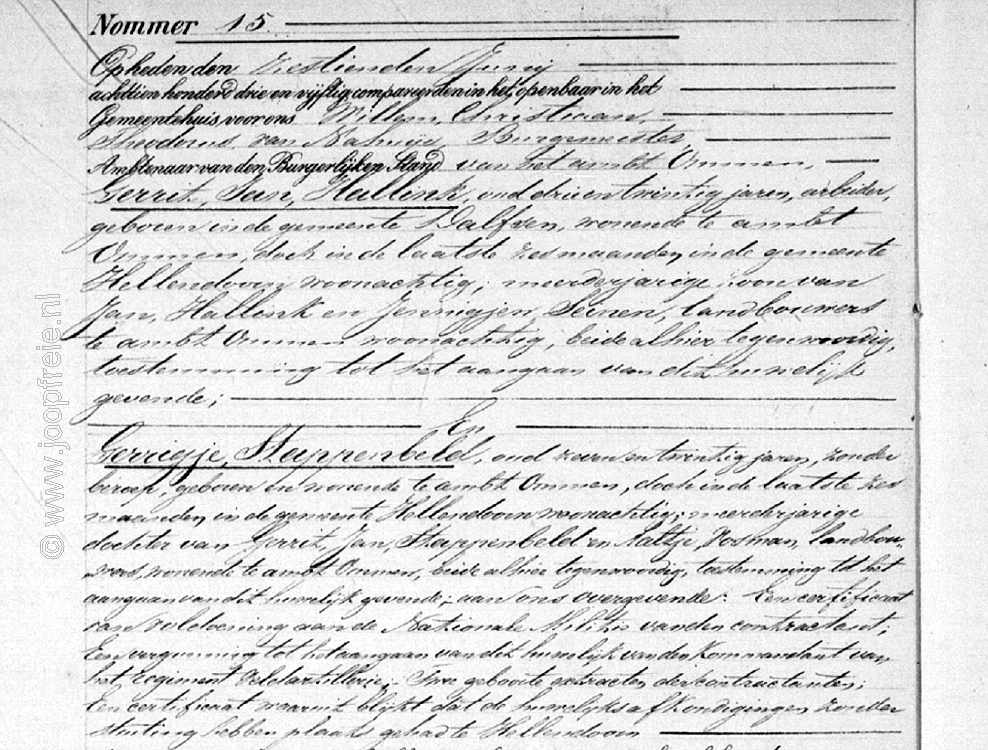 Nommer 15.
Op heden den zestienden Junij
achttien honderd drie en vijftig compareerden in het openbaar in het
Gemeentehuis, voor ons Willem, Christiaan,
Theodorus van Nahuijs Burgemeester
Ambtenaar van den Burgerlijken Stand van het ambt Ommen,
Gerrit, Jan, Hallink, oud drieentwintig jaren, arbeider,
geboren in de gemeente Dalfsen, wonende te ambt
Ommen, doch in de laatste zes maanden, in de gemeente
Hellendoorn woonachtig; meerderjarige zoon van
Jan, Hallink en Jennigjen, Seinen, landbouwers
te ambt Ommen woonachtig, beide alhier tegenwoordig,
toestemming tot het aangaan van dit huwelijk
gevende;
En
Gerrigje, Stappenbeld, oud zeven en twintig jaren, zonder
beroep, geboren en wonende te ambt Ommen, doch in de laatste zes
maanden, in de gemeente Hellendoorn woonachtig; meerderjarige
dochter van Gerrit, Jan, Stappenbeld en Aaltje, Vosman, landbou-
wers, wonende te ambt Ommen, beide alhier tegenwoordig, toestemming tot het
aangaan van dit huwelijk gevende; aan ons overgevende: Een certificaat
van voldoening aan de Nationale Militie van den contractant,
Een vergunning tot het aangaan van dit huwelijk van den Kommandant van
het regiment veldartillerie; Twee geboorte extracten der contractanten;
Een certificaat waaruit blijkt dat de huwelijks afkondigingen zonder
stuiting hebben plaats gehad te Hellendoorn
© www.joopfreie.nl